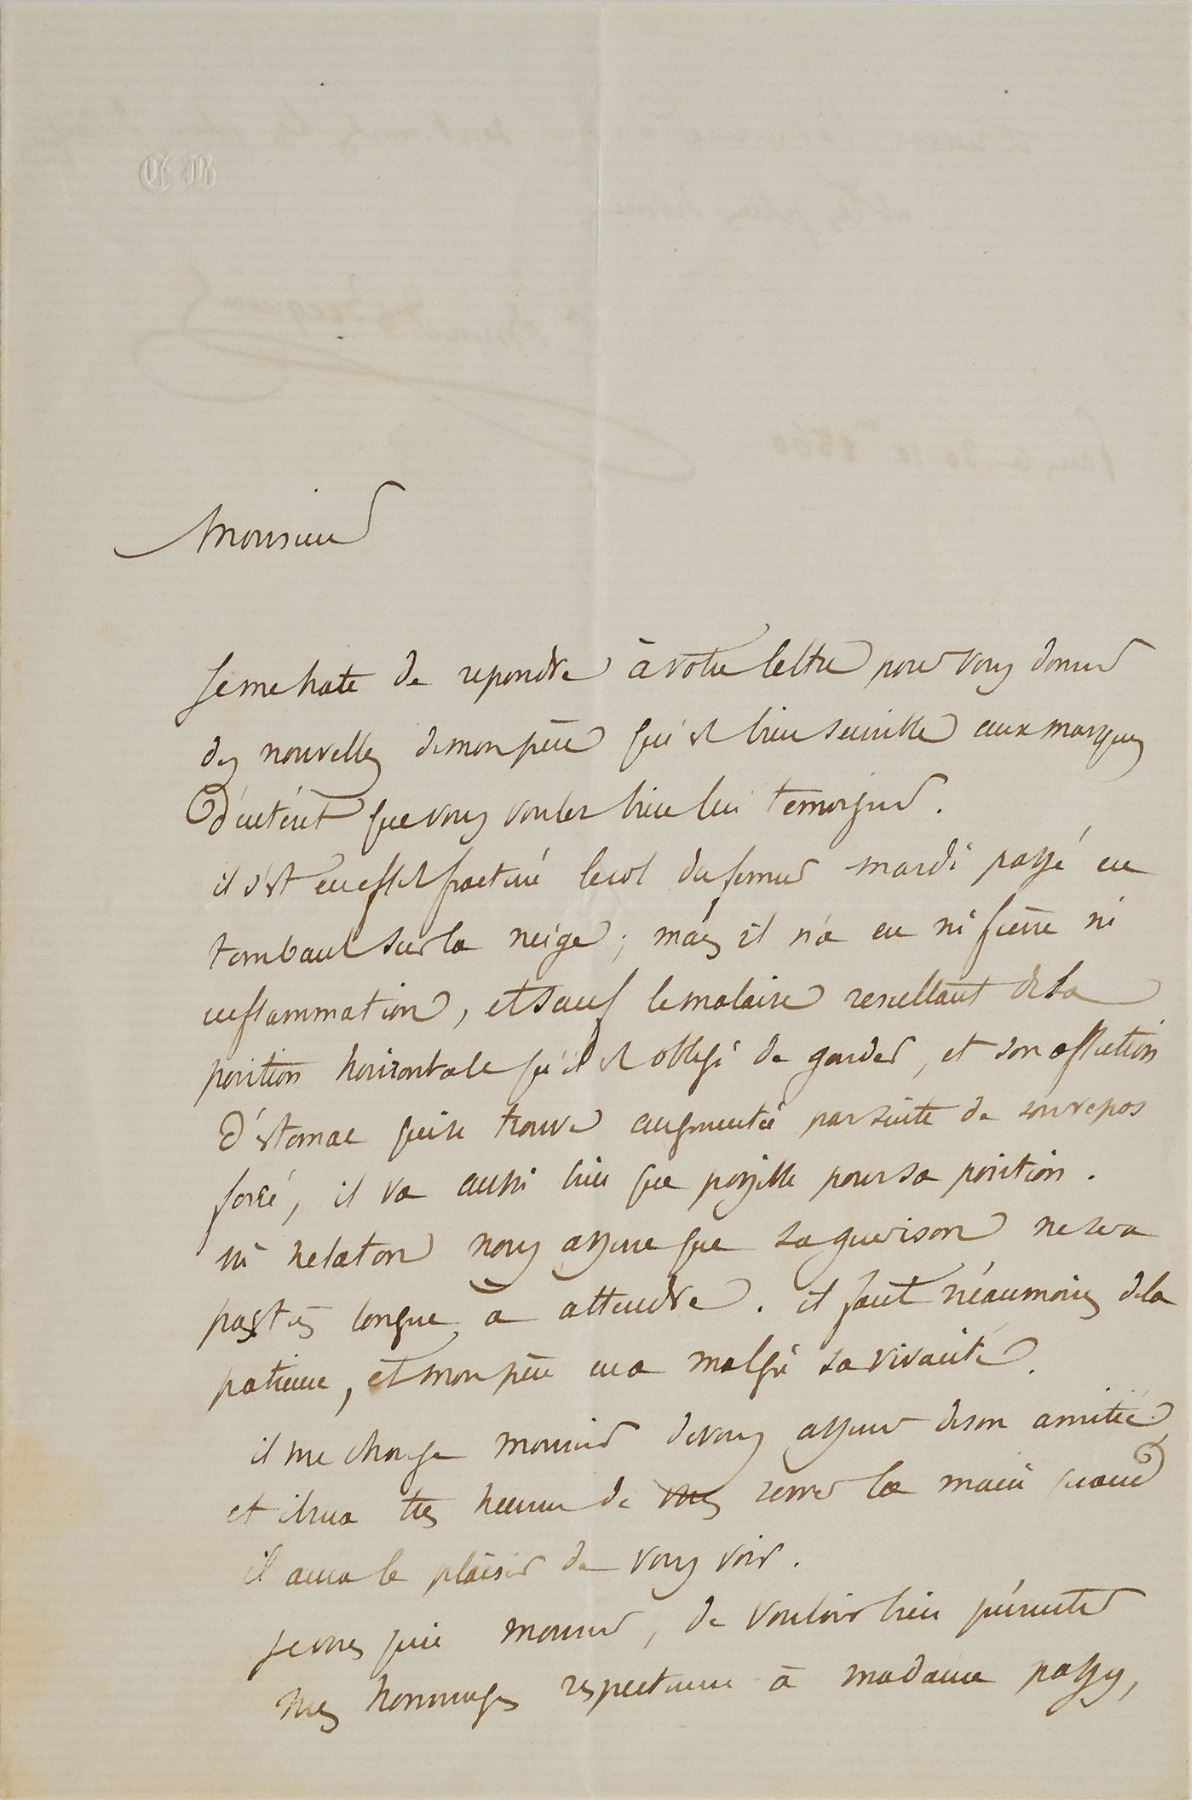 Monsieur
Je me hate de repondre à votre lettre pour vous donner
des nouvelles de mon père qui est bien sensible aux marques
d'intérêt que vous voulez bien lui temoigner.
il s'est en effet fracturé le col du femur mardi passé en
tombant sur la neige ; mais il n'a eu ni fièvre ni
inflammation, et sauf le malaise resultant de sa
position horizontale qu'il est obligé de garder, et son affection
d'estomac qui se trouve augmentée par suite de son repos
forcé, il va aussi bien que possible pour sa position.
Mr Nelaton nous assure que sa guerison ne sera
pas très longue à attendre. il faut néanmoins de la
patience, et mon père en a malgré sa vivacité.
il me charge monsieur de vous assurer de son amitié
et il sera très heureux de serrer la main quand
il aura le plaisir de vous voir.
Je vous prie monsieur, de vouloir bien présenter
mes hommages respectueux à madame passy,